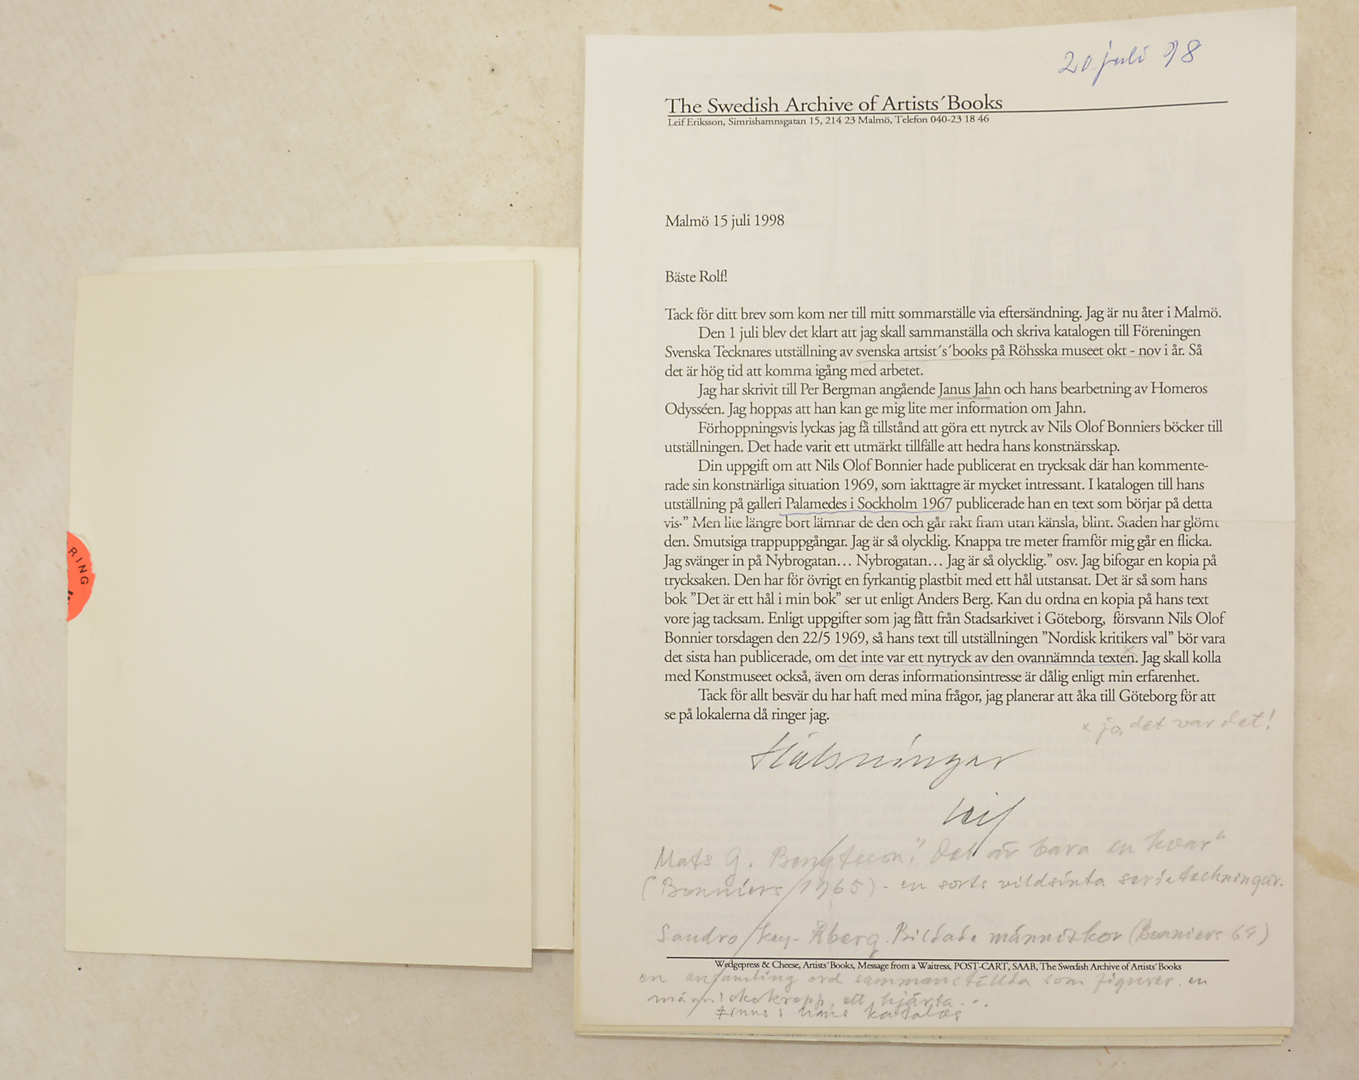 RING
20 juli 98
The Swedish Archive of Artists´Books
Leif Eriksson, Simrishamnsgatan 15, 214 23 Malmö, Telefon 040-23 18 46
Malmö 15 juli 1998
Bäste Rolf!
Tack för ditt brev som kom ner till mitt sommarställe via eftersändning. Jag är nu åter i Malmö.
Den 1 juli blev det klart att jag skall sammanställa och skriva katalogen till Föreningen
Svenska Tecknares utställning av svenska artsist´s´books på Röhsska museet okt - nov i år. Så
det är hög tid att komma igång med arbetet.
Jag har skrivit till Per Bergman angående Janus Jahn och hans bearbetning av Homeros
Odysséen. Jag hoppas att han kan ge mig lite mer information om Jahn.
Förhoppningsvis lyckas jag få tillstånd att göra ett nytrck av Nils Olof Bonniers böcker till
utställningen. Det hade varit ett utmärkt tillfälle att hedra hans konstnärsskap.
Din uppgift om att Nils Olof Bonnier hade publicerat en trycksak där han kommente-
rade sin konstnärliga situation 1969, som iakttagre är mycket intressant. I katalogen till hans
utställning på galleri Palamedes i Sockholm 1967 publicerade han en text som börjar på detta
vis-” Men lite längre bort lämnar de den och går rakt fram utan känsla, blint. Staden har glömt
den. Smutsiga trappuppgångar. Jag är så olycklig. Knappa tre meter framför mig går en flicka.
Jag svänger in på Nybrogatan… Nybrogatan… Jag är så olycklig.” osv. Jag bifogar en kopia på
trycksaken. Den har för övrigt en fyrkantig plastbit med ett hål utstansat. Det är så som hans
bok ”Det är ett hål i min bok” ser ut enligt Anders Berg. Kan du ordna en kopia på hans text
vore jag tacksam. Enligt uppgifter som jag fått från Stadsarkivet i Göteborg, försvann Nils Olof
Bonnier torsdagen den 22/5 1969, så hans text till utställningen ”Nordisk kritikers val” bör vara
det sista han publicerade, om det inte var ett nytryck av den ovannämnda texten. Jag skall kolla
med Konstmuseet också, även om deras informationsintresse är dålig enligt min erfarenhet.
Tack för allt besvär du har haft med mina frågor, jag planerar att åka till Göteborg för att
se på lokalerna då ringer jag.
x jo, det var det!
Hälsningar
Leif
Mats G. Bengtsson: "Det är bara en kvar"
(Bonniers 1965) - en sorts vildsinta serieteckningar.
Sandro Key-Åberg. Bildade människor (Bonniers 64)
Wedgepress & Cheese, Artists´Books, Message from a Waitress, POST-CART, SAAB, The Swedish Archive of Artists´Books
en ansamling ord sammanställda som figurer. en
människokropp, ett hjärta...
Finns i hans katalog